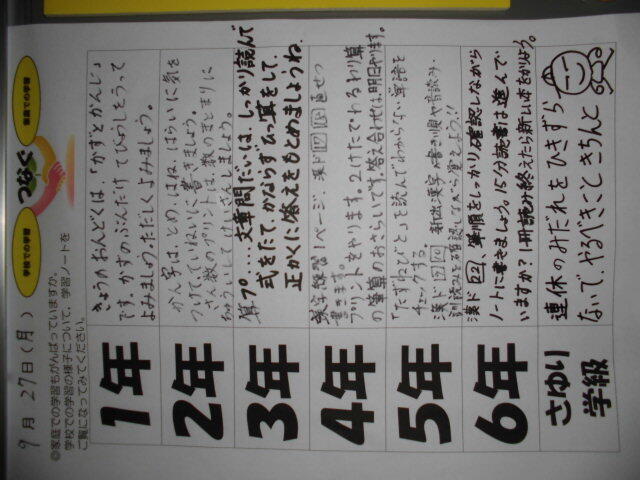 学校での学習
つなぐ
家庭での学習
9月27日(月)
◎家庭での学習もがんばっていますか。
学校での学習の様子について、学習ノートを
ご覧になってみてください。
1年
きょうのおんどくは、「かずとかんじ」
です。かずのぶんだけ てびょうしをうって
よみましょう。ただしくよみましょう。
2年
かん字は、とめ、はね、はらいに気を
つけて、ていねいに書きましょう。
さん数のプリントは、数のまとまりに
ちゅういして けいさんしましょう。
3年
算プ…文章問だいは、しっかり読んで
式をたて、かならずひっ算をして、
正かくに答えをもとめましょうね。
4年
漢字練習1ページ、漢ド
書きます。
プリントをやります。2けたでわるわり算
の筆算のおさらいです。答え合わせは、明日やります。
5年
「たずねびと」を読んでわからない単語を
チェックする。
漢ド 新出漢字、書き順や音読み・
訓読みを確認しながら覚えよう!!
6年
漢ド22、筆順をしっかり確認しながら
ノートに書きましょう。15分読書は進んで
いますか?1冊読み終えたら新しい本をかりよう。
さゆり
学級
連休のみだれをひきずら
ないで、やるべきこときちんと